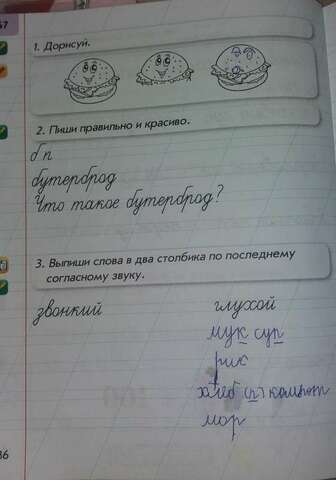 67
1. Дорисуй.
2. Пиши правильно и красиво.
б п
бутерброд
Что такое бутерброд?
3. Выпиши слова в два столбика по последнему
согласному звуку.
звонкий глухой
мук суп
рис
хлеб (п) компот
мор
86